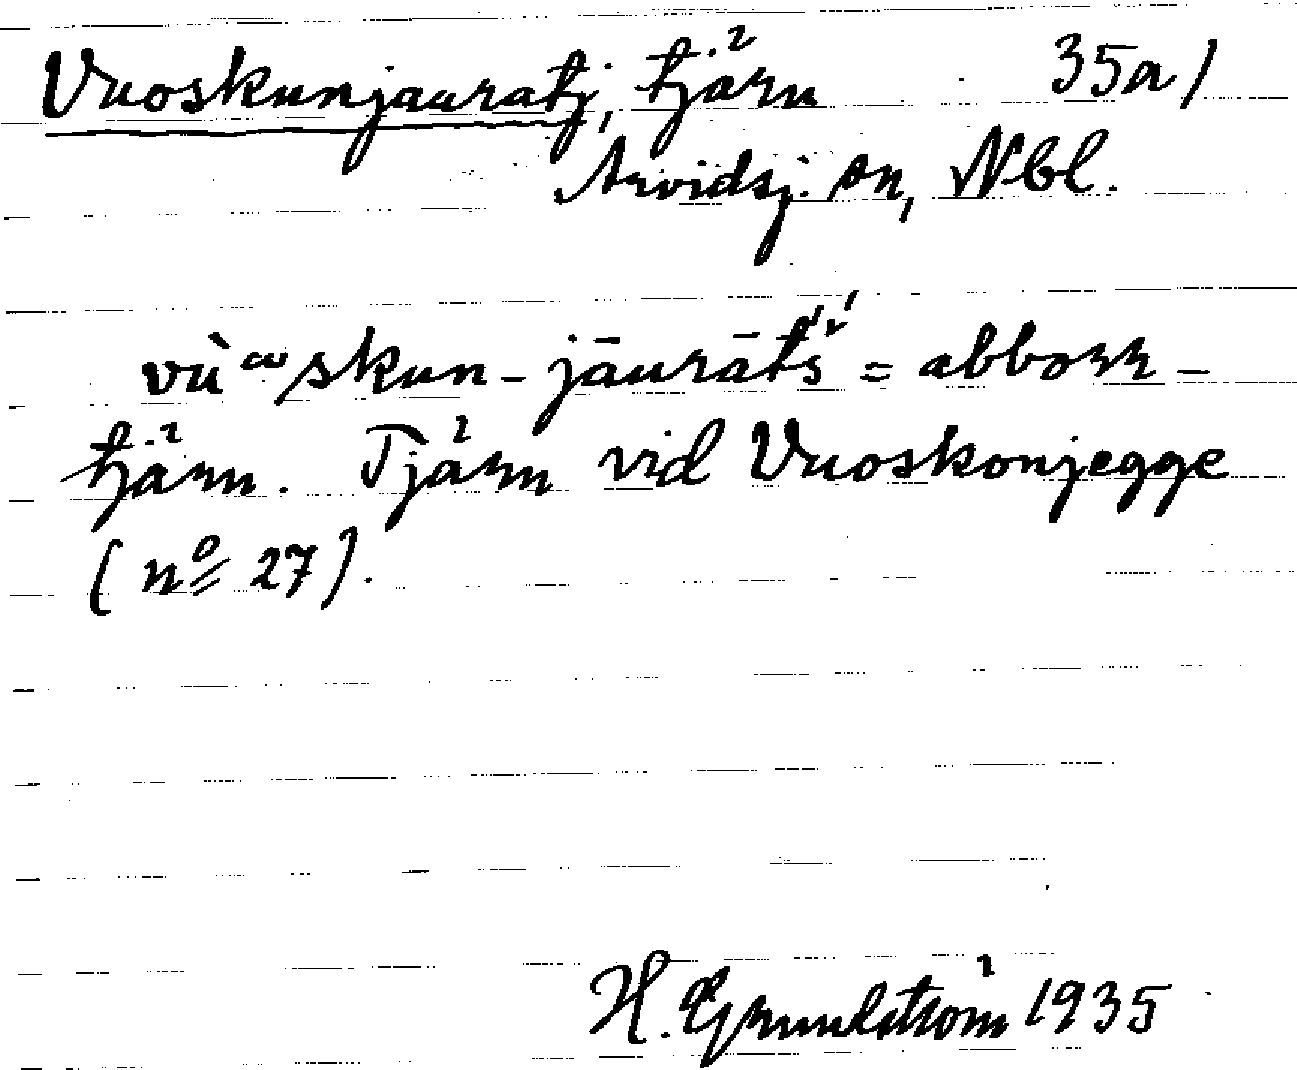 Vuoskunjauratj, tjärn 35a/
Arvidsj. sn, Nbl.
vùωskun-jāurātś́ = abborr-
tjärn. Tjärn vid Vuoskonjegge
(nº 27).
H. Grundström 1935